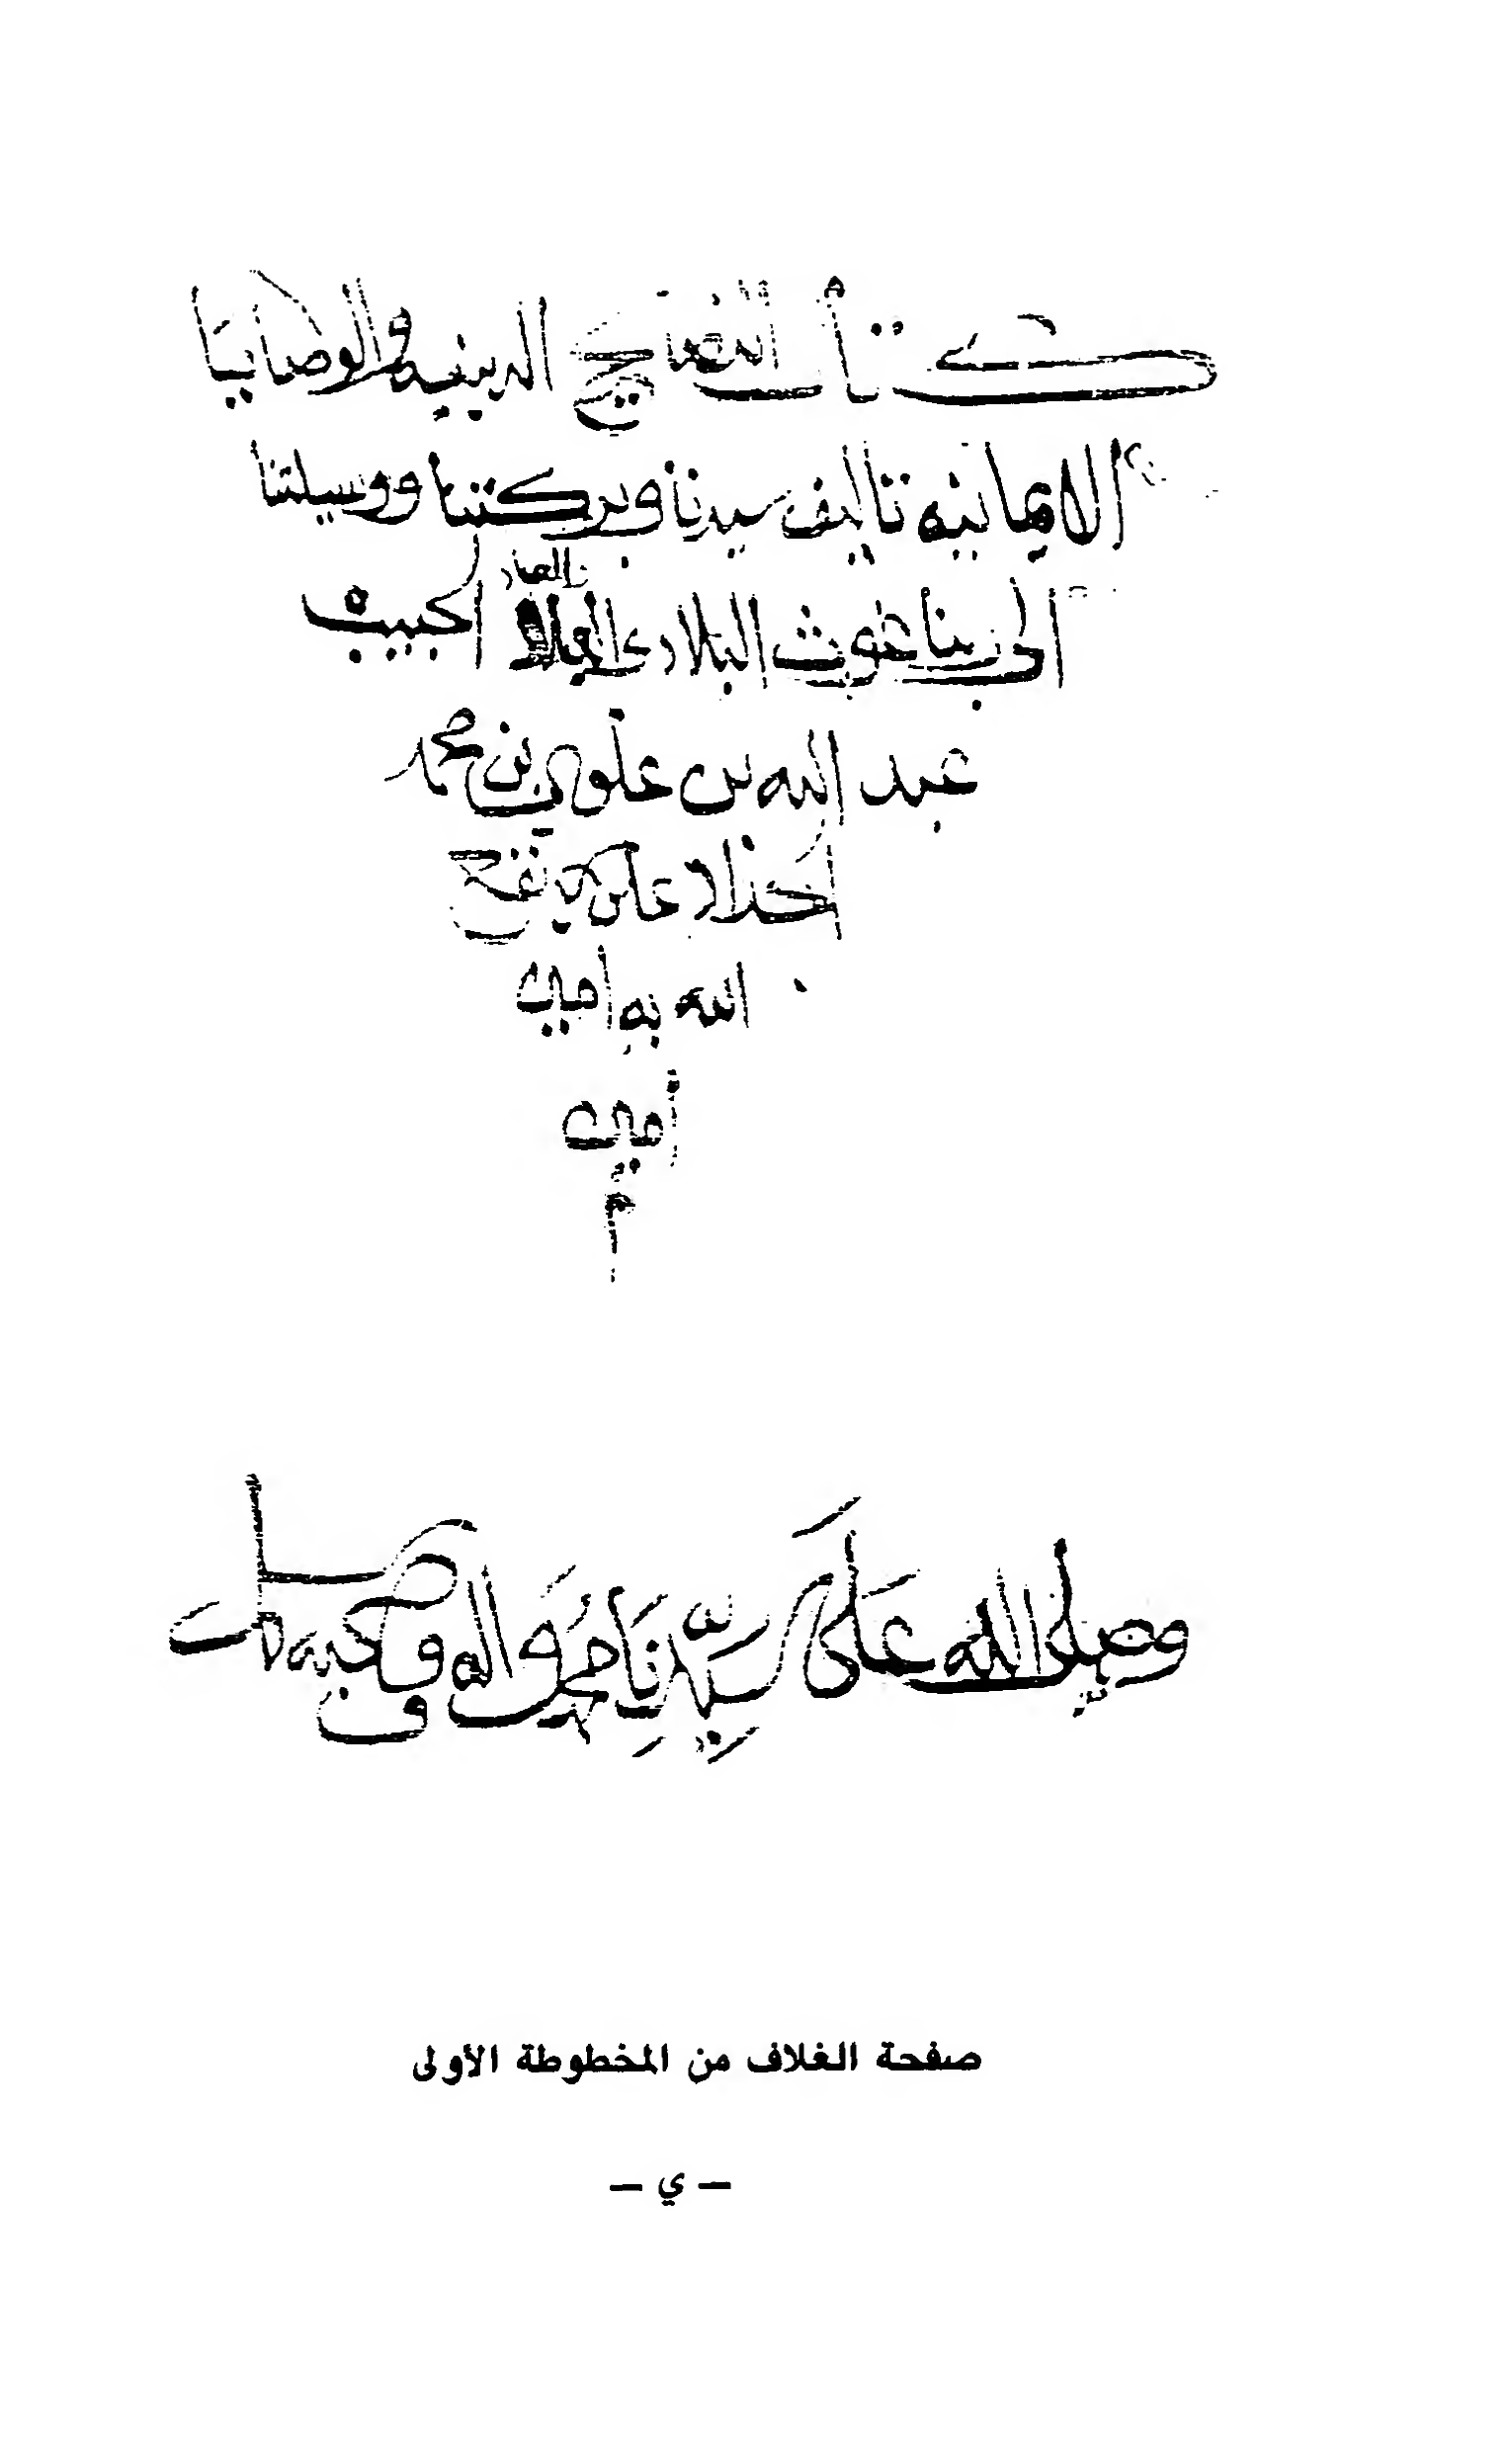 كتاب النصايح الدينيه والوصايا
الايمانيه تاليف سيدنا وبركتنا ووسيلتنا
الى ربنا غوث البلاد والعباد الحبيب
عبد الله بن علوي بن محمد
الحداد علوي نفع
الله به امين
امين
م
وصلى الله على سيدنا محمد واله وصحبه وسلم
صفحة الغلاف من المخطوطة الأولى
– ي –